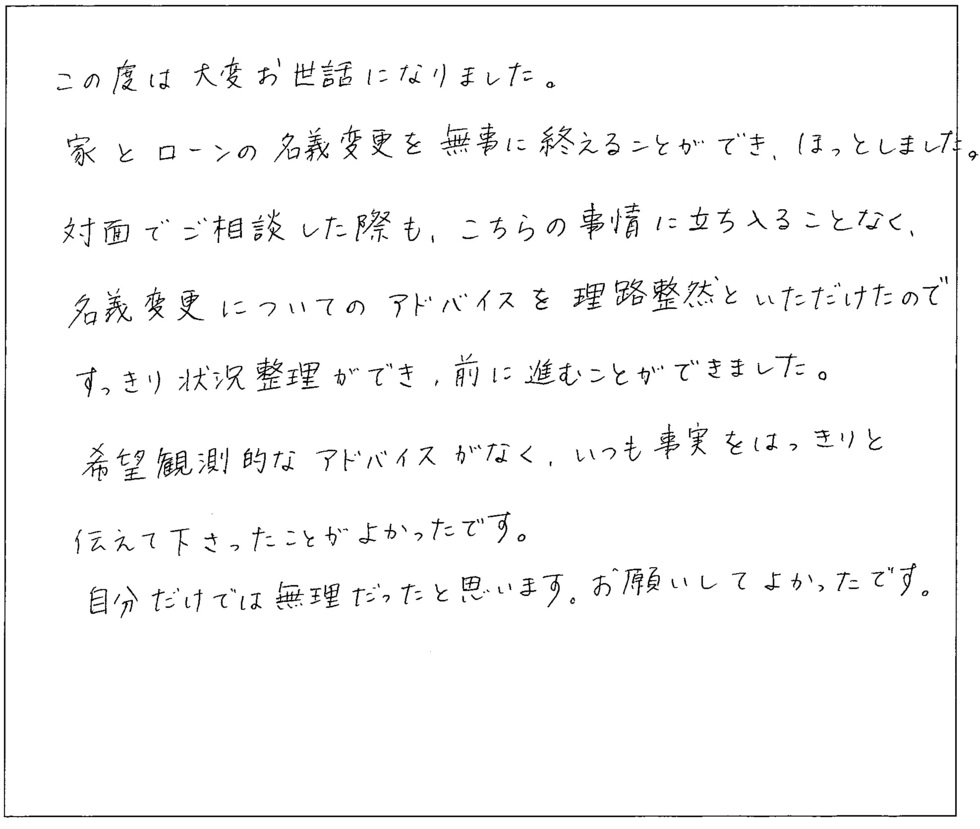 この度は大変お世話になりました。
家とローンの名義変更を無事に終えることができ、ほっとしました。
対面でご相談した際も、こちらの事情に立ち入ることなく、
名義変更についてのアドバイスを理路整然といただけたので
すっきり状況整理ができ、前に進むことができました。
希望観測的なアドバイスがなく、いつも事実をはっきりと
伝えて下さったことがよかったです。
自分だけでは無理だったと思います。お願いしてよかったです。